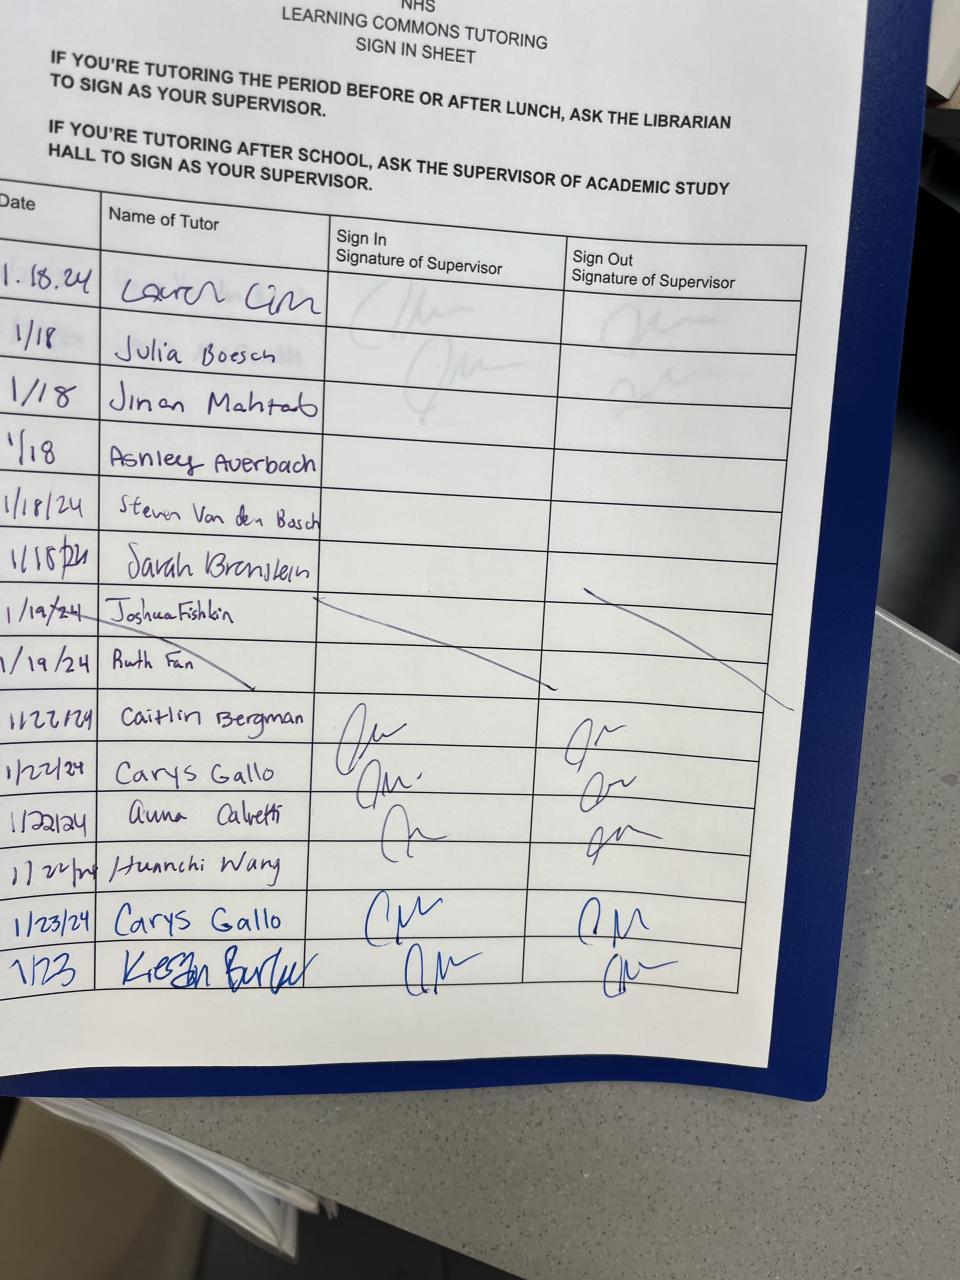 NHS
LEARNING COMMONS TUTORING
SIGN IN SHEET
IF YOU'RE TUTORING THE PERIOD BEFORE OR AFTER LUNCH, ASK THE LIBRARIAN
TO SIGN AS YOUR SUPERVISOR.
IF YOU'RE TUTORING AFTER SCHOOL, ASK THE SUPERVISOR OF ACADEMIC STUDY
HALL TO SIGN AS YOUR SUPERVISOR.
Date Name of Tutor Sign In Signature of Supervisor Sign Out Signature of Supervisor
1.18.24 Lauren
1/18 Julia Boesch
1/18 Jinan Mahtab
1/18 Ashley Auerbach
1/18/24 Steven Van den Bosch
1/18/24 Sarah Bronstein
1/19/24 Joshua Fishkin
1/19/24 Ruth Fan
1/22/24 Caitlin Bergman
1/22/24 Carys Gallo
1/22/24 Anna Calvetti
1/22/24 Huanchi Wang
1/23/24 Carys Gallo
1/23